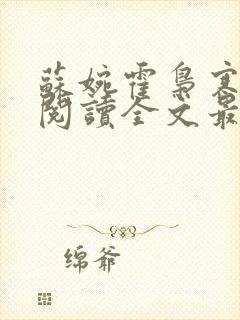 蘇婉霍梟寒
閱讀全文最
绵爺